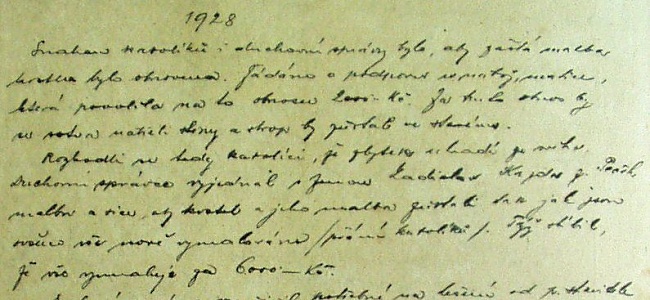 1928
Snahou katolíků i duchovní správy bylo, aby zašlá malba
kostela byla obnovena. Žádáno o podporu
která povolila na to obnosu 2000.- Kč. Za tento obnos by
se sotva natřeli stěny a strop by zůstal ve starém.
Rozhodli se tedy katolíci, že zbytek uhradí ze svého.
Duchovní správce vyjednal s panem Ladislav z
malbu a sice, aby kostel a jeho malba zůstali tak jak jsou
ovšem vše nově vymalováno / přání katolíků /. Týž slíbil,
že vše vymaluje za 6000.- Kč.
potřebné na lešení od p.